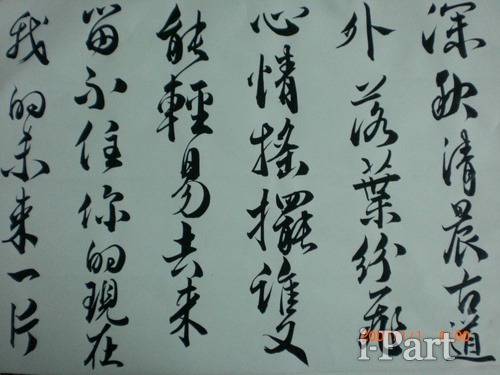 深秋清晨古道
外落葉紛飛
心情搖擺誰又
能輕易去來
留不住你的現在
我的未來一片
i-Part